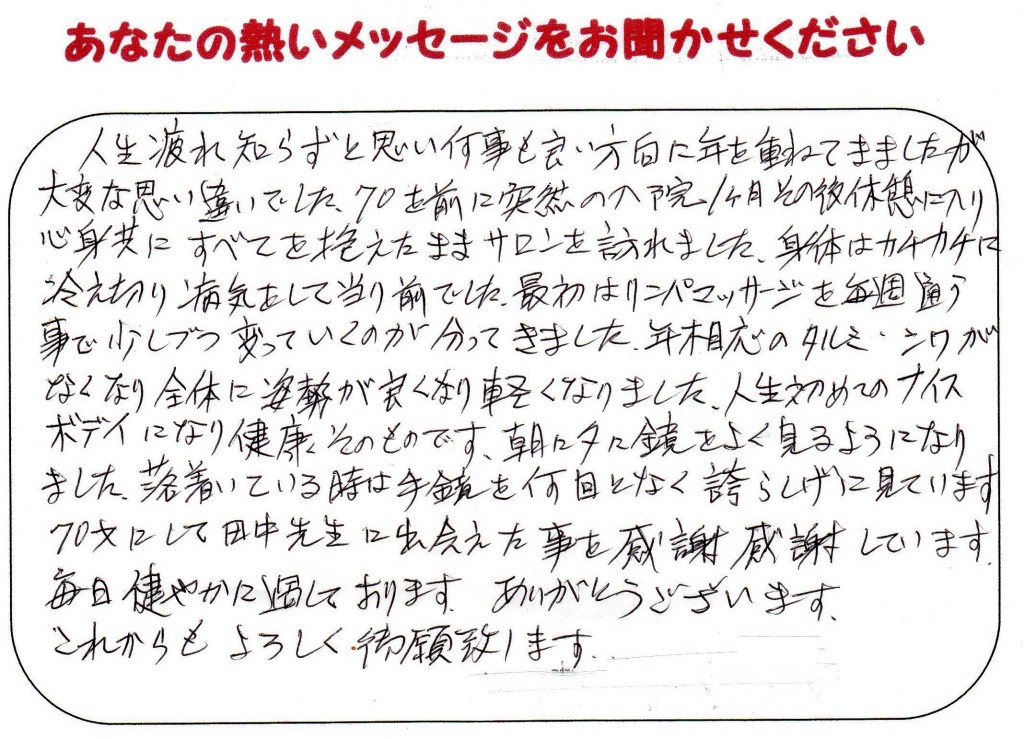 あなたの熱いメッセージをお聞かせください
人生疲れ知らずと思い何事も良い方向に年を重ねてきましたが
大変な思い違いでした、70を前に突然の入院1ヶ月その後休憩に入り
心身共に すべてを抱えたままサロンを訪れました、身体はカチカチに
冷え切り 病気をして当り前でした、最初はリンパマッサージを毎週通う
事で少しづつ変っていくのが分ってきました、年相応のタルミ・シワが
なくなり全体に姿勢が良くなり軽くなりました、人生初めてのナイス
ボデイになり健康そのものです、朝に夕に鏡をよく見るようになり
ました、落着いている時は手鏡を何回となく誇らしげに見ています
70才にして田中先生に出会えた事を感謝感謝しています、
毎日健やかに過して おります、 ありがとうございます、
これからも よろしく御願致します、